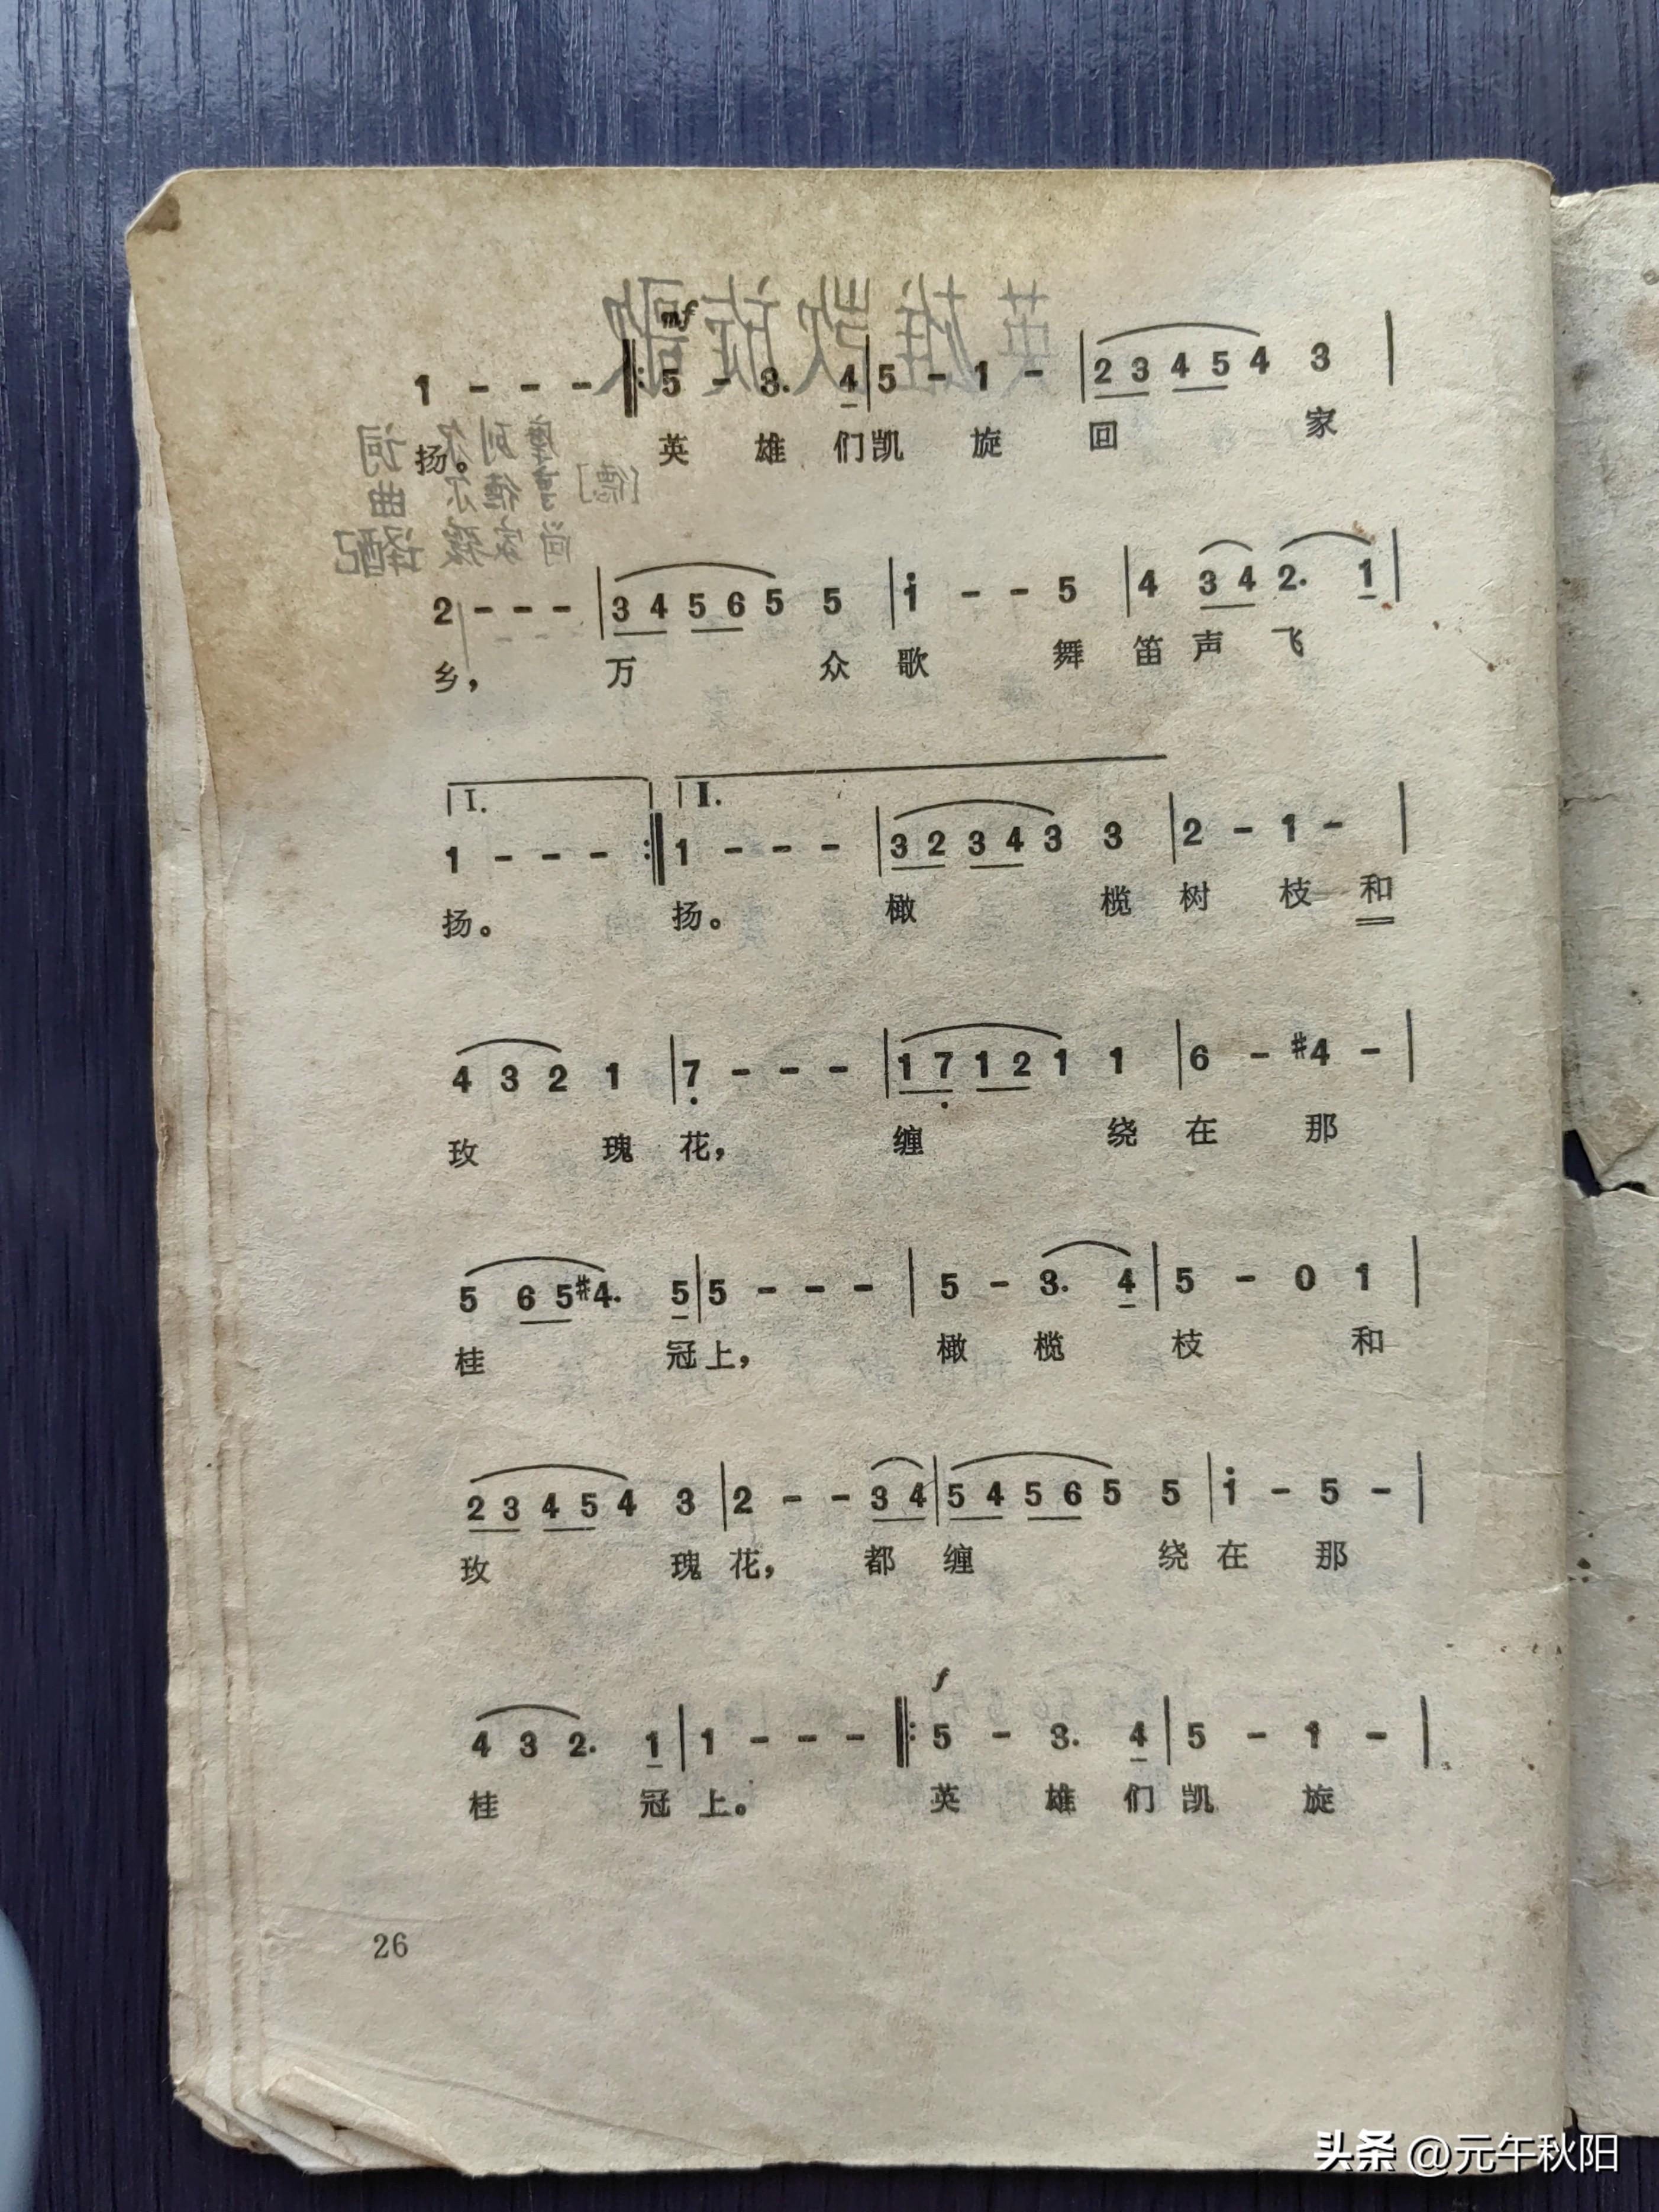 英雄凯旋歌
mf
1 - - - ‖: 5 - 3. 4 | 5 - 1 - | 2 3 4 5 4 3 |
扬。 英 雄 们 凯 旋 回 家
摩 列 尔 词
[德] 亨 德 尔 曲
尚 家 骧 译配
2 - - - | 3 4 5 6 5 5 | i - - 5 | 4 3 4 2. 1 |
乡， 万 众 歌 舞 笛 声 飞
I. II.
1 - - - :‖ 1 - - - | 3 2 3 4 3 3 | 2 - 1 - |
扬。 扬。 橄 榄 树 枝 和
4 3 2 1 | 7 - - - | 1 7 1 2 1 1 | 6 - #4 - |
玫 瑰 花， 缠 绕 在 那
5 6 5 #4. 5 | 5 - - - | 5 - 3. 4 | 5 - 0 1 |
桂 冠 上， 橄 榄 枝 和
2 3 4 5 4 3 | 2 - - 3 4 | 5 4 5 6 5 5 | i - 5 - |
玫 瑰 花， 都 缠 绕 在 那
f
4 3 2. 1 | 1 - - - ‖: 5 - 3. 4 | 5 - 1 - |
桂 冠 上。 英 雄 们 凯 旋
26
头条 @元午秋阳